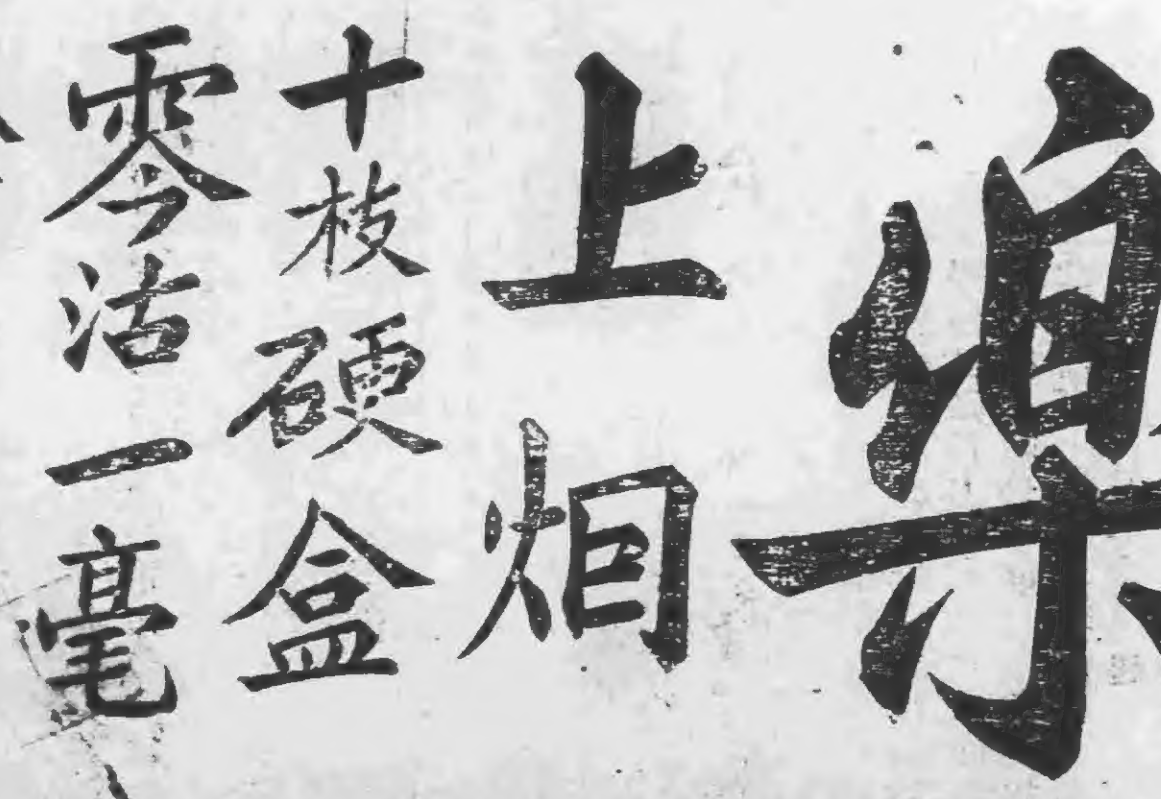 樂
上烟
十枝硬盒
零沽一毫